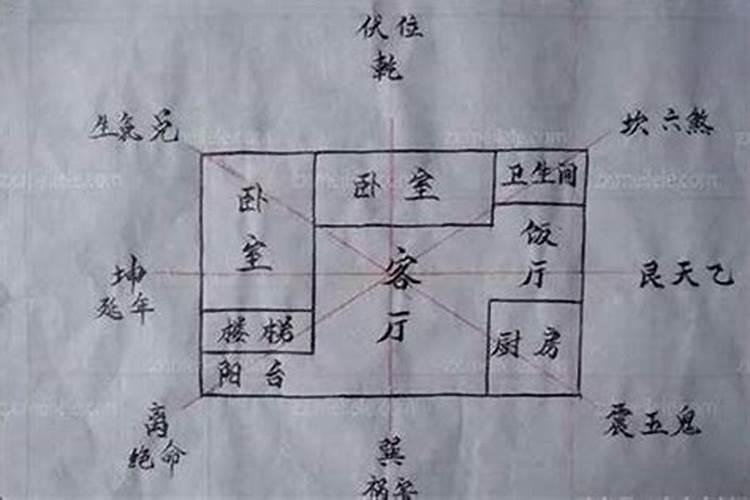 伏位
乾
生氣兑
坎六煞
卧室
卧室
卫生间
饭厅
客厅
坤
延年
艮天乙
楼梯
阳台
厨房
离
绝命
震五鬼
巽
祸害